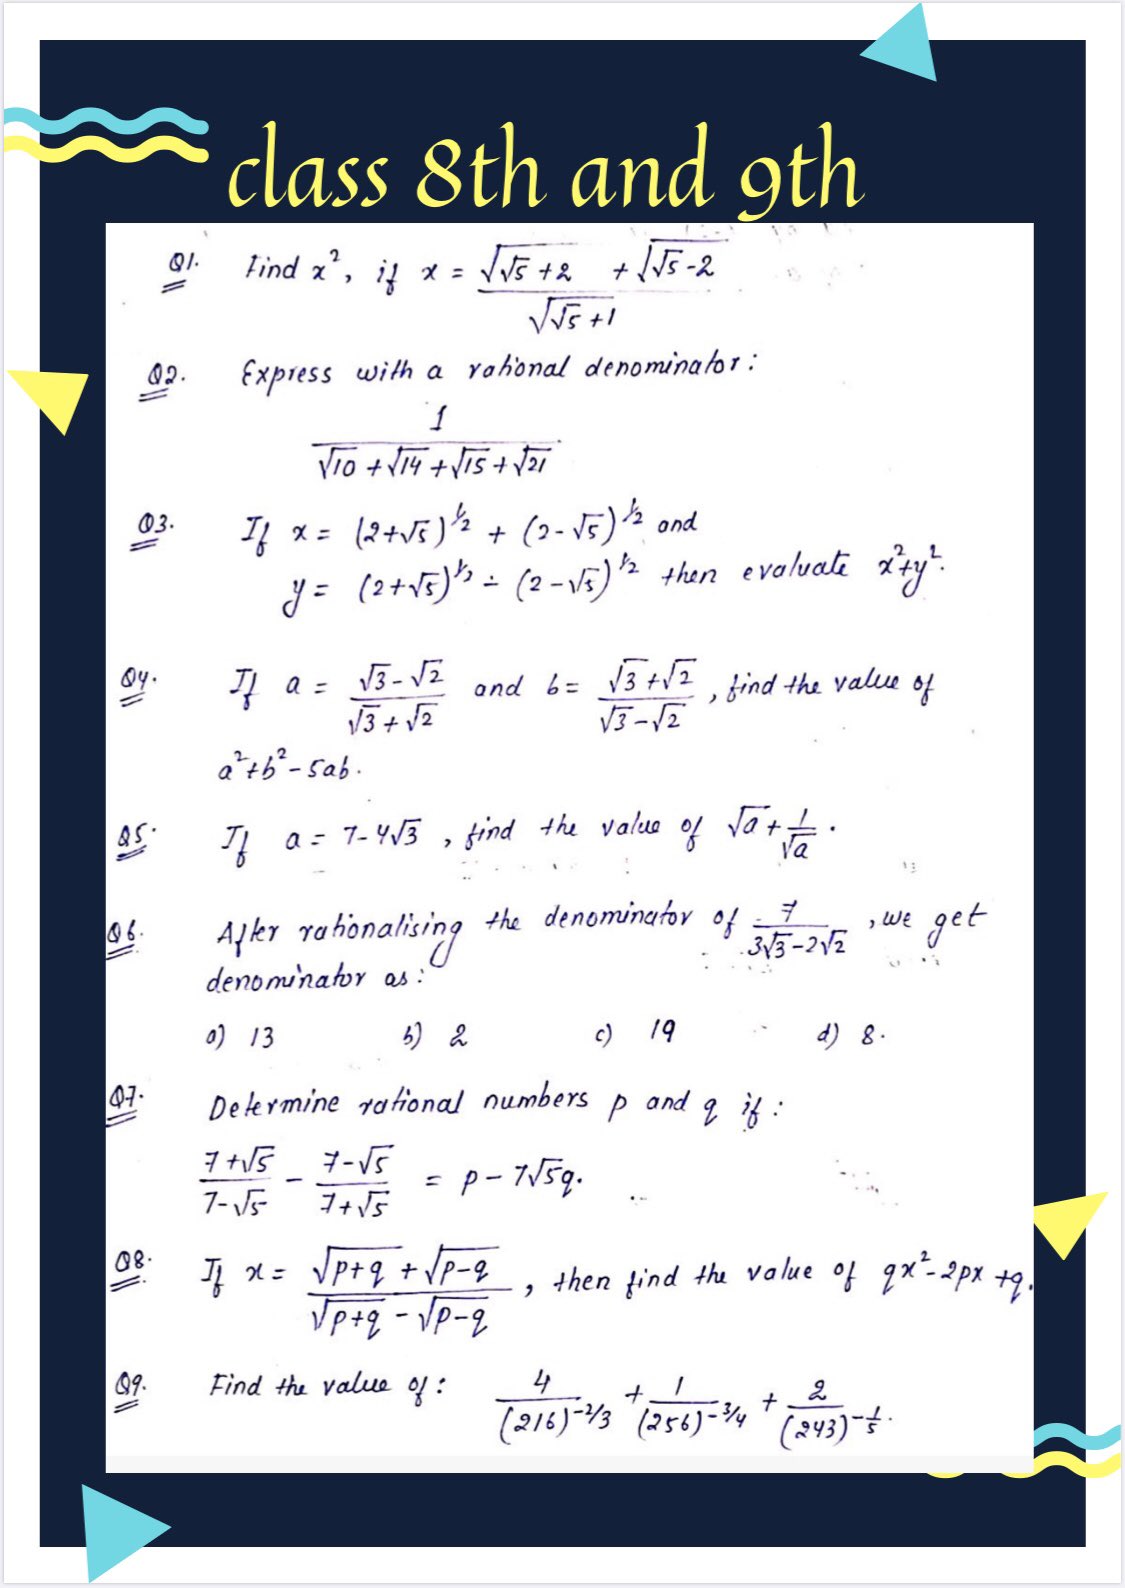 class 8th and 9th
Q1. Find x², if x = (√(√5 + 2) + √(√5 - 2)) / √(√5 + 1)
Q2. Express with a rational denominator :
1 / (√10 + √14 + √15 + √21)
Q3. If x = (2+√5)^1/2 + (2-√5)^1/2 and
y = (2+√5)^1/2 - (2-√5)^1/2 then evaluate x²+y².
Q4. If a = (√3-√2)/(√3+√2) and b = (√3+√2)/(√3-√2), find the value of
a²+b²-5ab.
Q5. If a = 7-4√3, find the value of √a + 1/√a.
Q6. After rationalising the denominator of 7/(3√3-2√2), we get
denominator as :
a) 13 b) 2 c) 19 d) 8.
Q7. Determine rational numbers p and q if :
(7+√5)/(7-√5) - (7-√5)/(7+√5) = p - 7√5q.
Q8. If x = (√(p+q) + √(p-q)) / (√(p+q) - √(p-q)), then find the value of qx²-2px+q.
Q9. Find the value of : 4/(216)^-2/3 + 1/(256)^-3/4 + 2/(243)^-1/5.